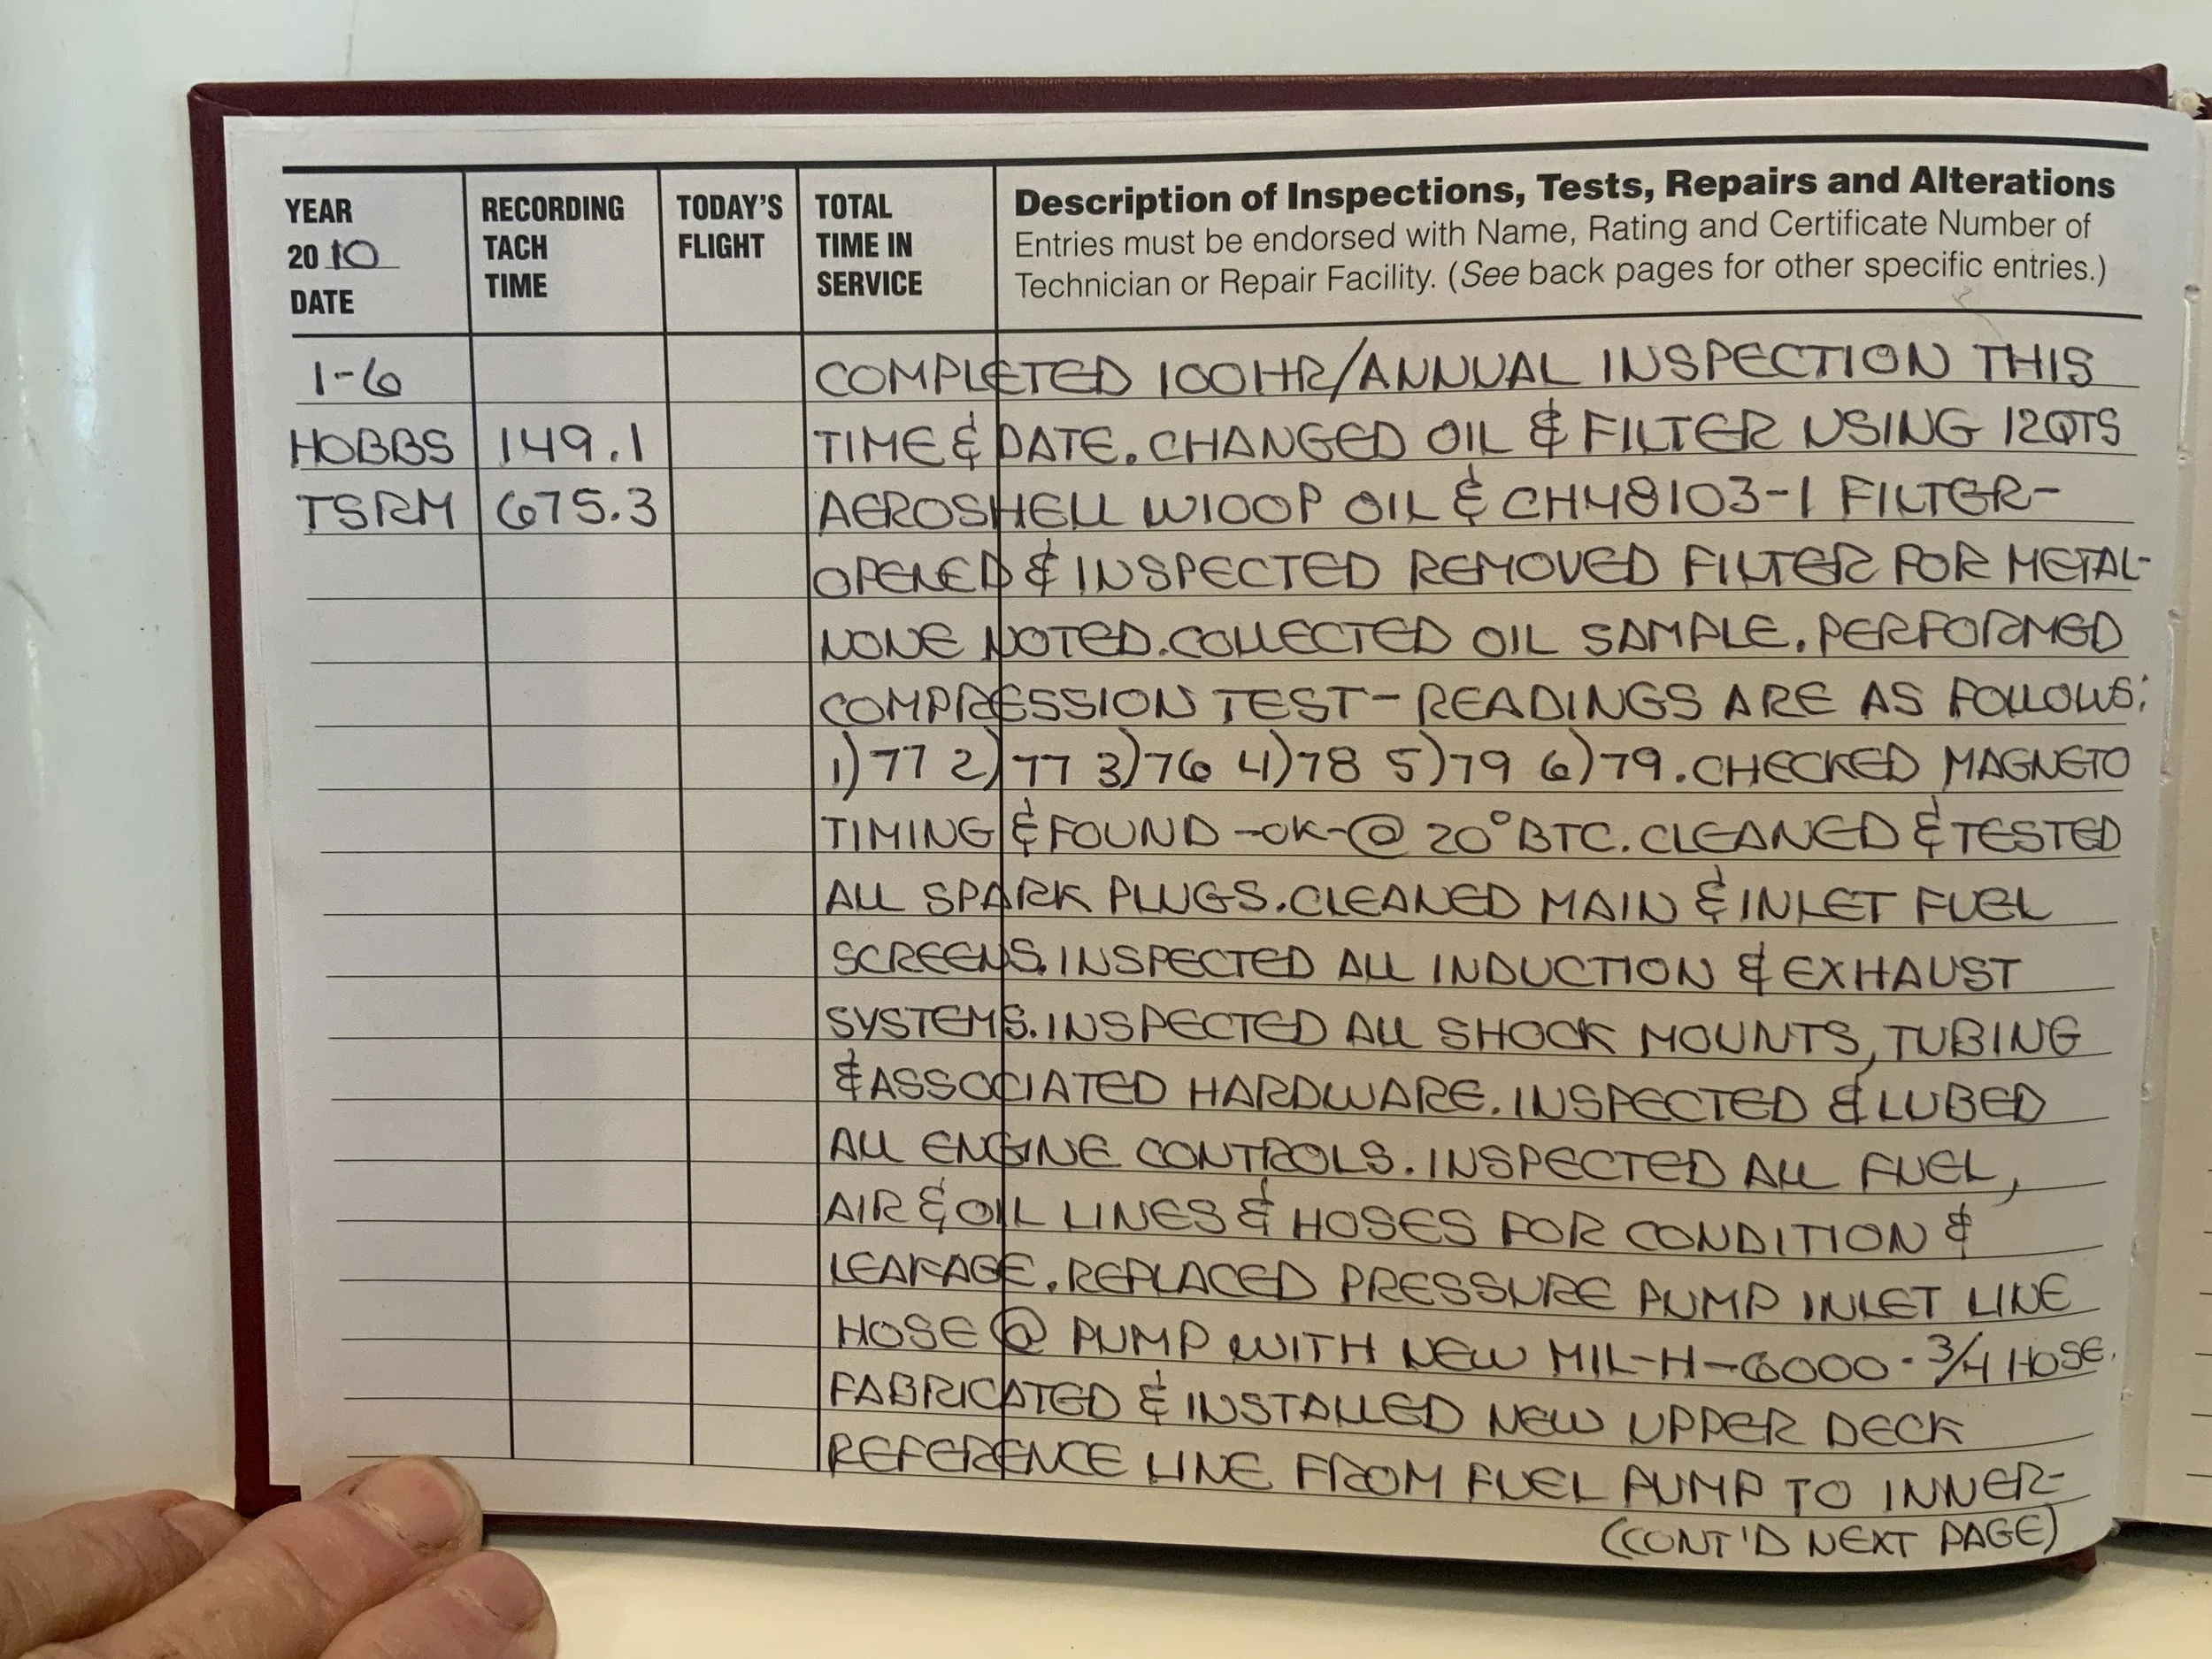 YEAR
20 10
DATE
RECORDING
TACH
TIME
TODAY'S
FLIGHT
TOTAL
TIME IN
SERVICE
Description of Inspections, Tests, Repairs and Alterations
Entries must be endorsed with Name, Rating and Certificate Number of
Technician or Repair Facility. (See back pages for other specific entries.)
1-6 COMPLETED 100HR/ANNUAL INSPECTION THIS
HOBBS 149.1 TIME & DATE. CHANGED OIL & FILTER USING 12QTS
TSRM 675.3 AEROSHELL W100P OIL & CH48103-1 FILTER-
OPENED & INSPECTED REMOVED FILTER FOR METAL-
NONE NOTED. COLLECTED OIL SAMPLE. PERFORMED
COMPRESSION TEST - READINGS ARE AS FOLLOWS:
1)77 2)77 3)76 4)78 5)79 6)79. CHECKED MAGNETO
TIMING & FOUND -OK-@ 20° BTC. CLEANED & TESTED
ALL SPARK PLUGS. CLEANED MAIN & INLET FUEL
SCREENS. INSPECTED ALL INDUCTION & EXHAUST
SYSTEMS. INSPECTED ALL SHOCK MOUNTS, TUBING
& ASSOCIATED HARDWARE. INSPECTED & LUBED
ALL ENGINE CONTROLS. INSPECTED ALL FUEL,
AIR & OIL LINES & HOSES FOR CONDITION &
LEAKAGE. REPLACED PRESSURE PUMP INLET LINE
HOSE @ PUMP WITH NEW MIL-H-6000-3/4 HOSE.
FABRICATED & INSTALLED NEW UPPER DECK
REFERENCE LINE FROM FUEL PUMP TO INNER-
(CONT'D NEXT PAGE)